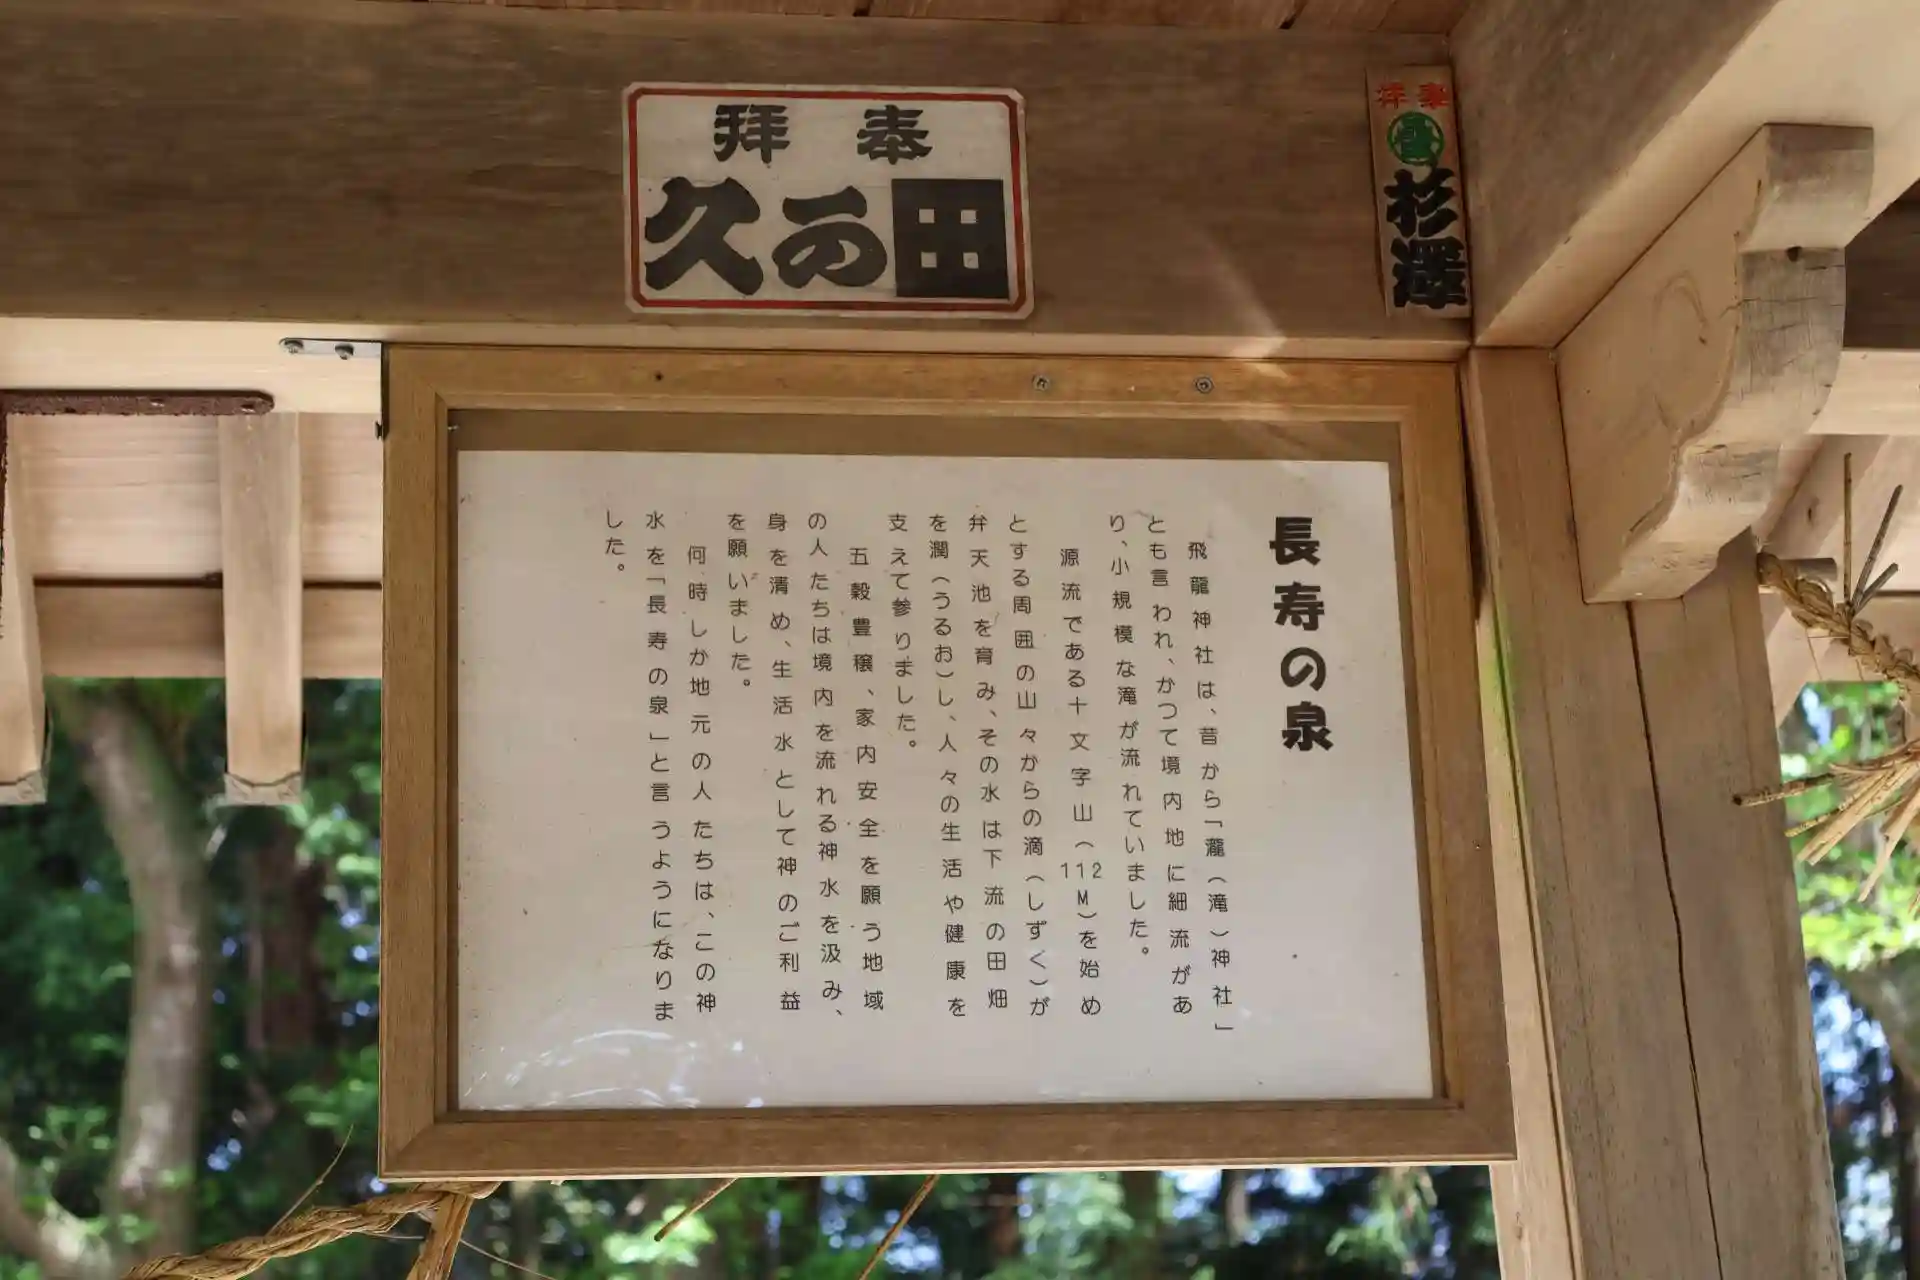 奉拝
久の田
奉拝
杉澤
長寿の泉
飛龍神社は、昔から「瀧（滝）神社」
とも言われ、かつて境内地に細流があ
り、小規模な滝が流れていました。
源流である十文字山（112M）を始め
とする周囲の山々からの滴（しずく）が
弁天池を育み、その水は下流の田畑
を潤（うるお）し、人々の生活や健康を
支えて参りました。
五穀豊穣、家内安全を願う地域
の人たちは境内を流れる神水を汲み、
身を清め、生活水として神のご利益
を願いました。
何時しか地元の人たちは、この神
水を「長寿の泉」と言うようになりま
した。